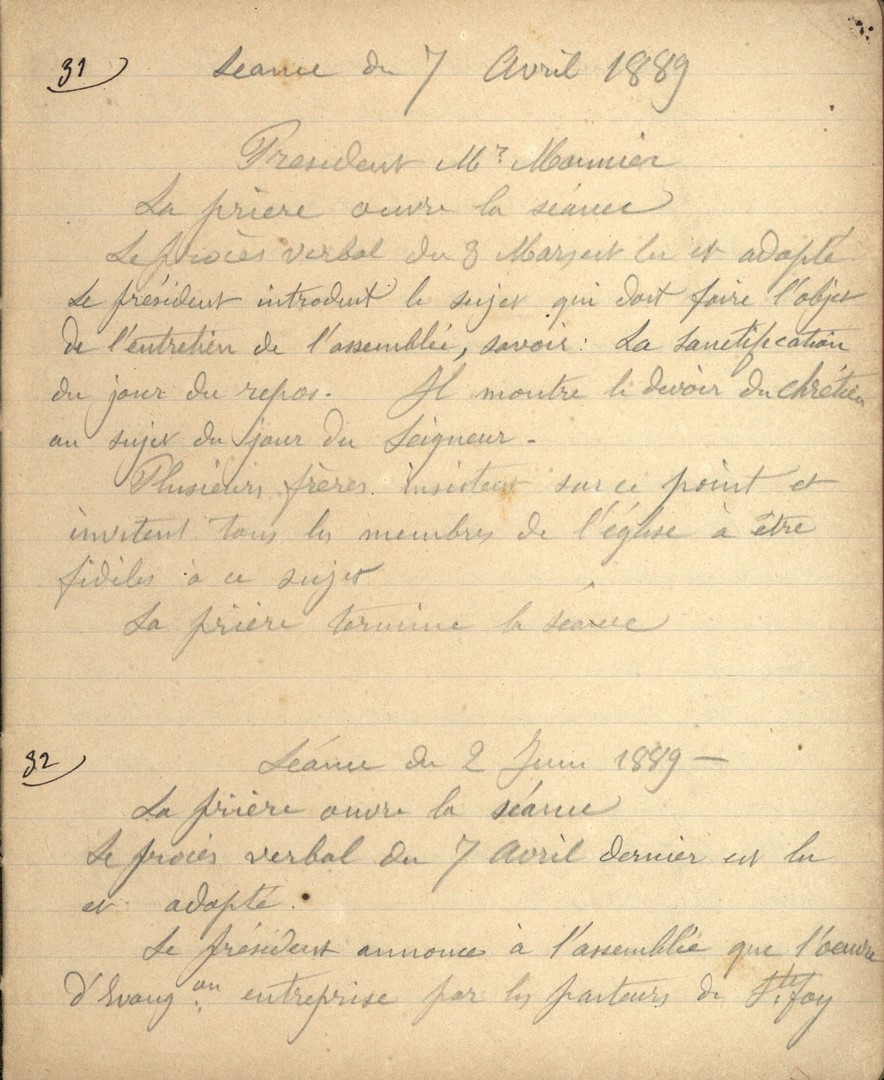 31) Séance du 7 Avril 1889
Président Mr. Monnier
La prière ouvre la séance
Le procès verbal du 3 Mars est lu et adopté
Le président introduit le sujet qui doit faire l'objet
de l'entretien de l'assemblée, savoir: La Sanctification
du jour du repos. Il montre le devoir du chrétien
au sujet du jour du Seigneur -
Plusieurs frères insistent sur ce point et
invitent tous les membres de l'église à être
fidèles à ce sujet
La prière termine la séance
32) Séance du 2 Juin 1889 —
La prière ouvre la séance
Le procès verbal du 7 Avril dernier est lu
et adopté.
Le président annonce à l'assemblée que l'oeuvre
d'Evang.on entreprise par les pasteurs de Ste foy